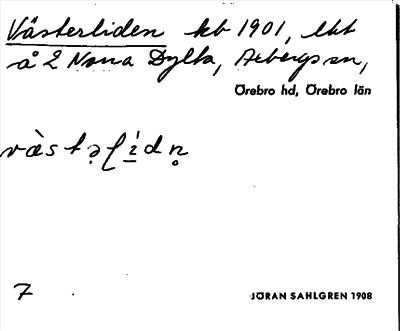 Västerliden kb 1901, lht
å 2 Norra Dylta, Axbergs sn,
Örebro hd, Örebro län
vàstəlídn̥
7
JÖRAN SAHLGREN 1908